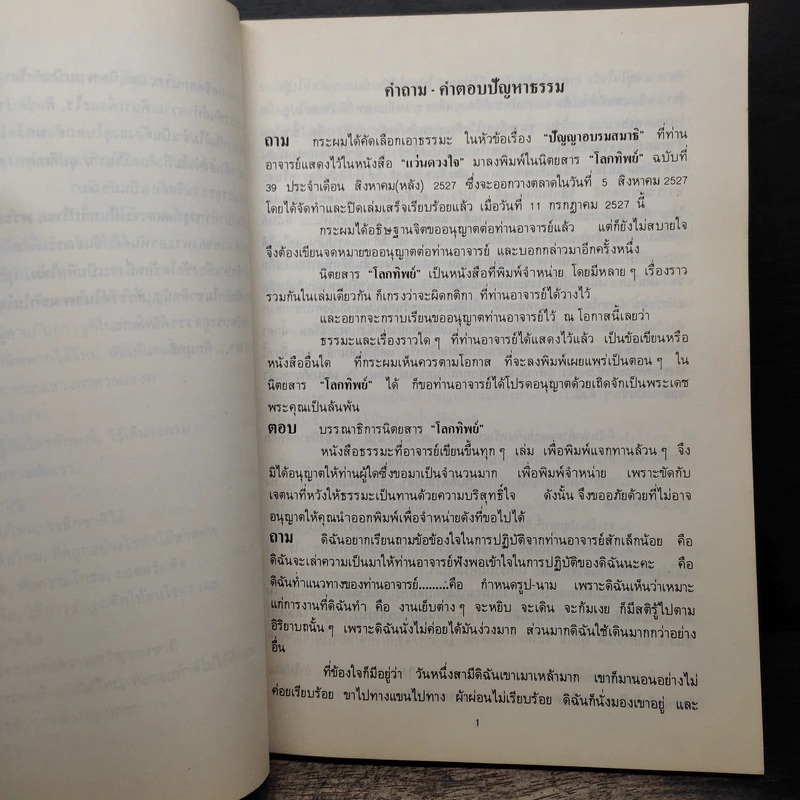 คำถาม - คำตอบปัญหาธรรม
ถาม กระผมได้คัดเลือกเอาธรรมะ ในหัวข้อเรื่อง "ปัญญาอบรมสมาธิ" ที่ท่าน
อาจารย์แสดงไว้ในหนังสือ "แว่นดวงใจ" มาลงพิมพ์ในนิตยสาร "โลกทิพย์" ฉบับที่
39 ประจำเดือน สิงหาคม(หลัง) 2527 ซึ่งจะออกวางตลาดในวันที่ 5 สิงหาคม 2527
โดยได้จัดทำและปิดเล่มเสร็จเรียบร้อยแล้ว เมื่อวันที่ 11 กรกฎาคม 2527 นี้
กระผมได้อธิษฐานจิตขออนุญาตต่อท่านอาจารย์แล้ว แต่ก็ยังไม่สบายใจ
จึงต้องเขียนจดหมายขออนุญาตต่อท่านอาจารย์ และบอกกล่าวมาอีกครั้งหนึ่ง
นิตยสาร "โลกทิพย์" เป็นหนังสือที่พิมพ์จำหน่าย โดยมีหลาย ๆ เรื่องราว
รวมกันในเล่มเดียวกัน ก็เกรงว่าจะผิดกติกา ที่ท่านอาจารย์ได้วางไว้
และอยากจะกราบเรียนขออนุญาตท่านอาจารย์ไว้ ณ โอกาสนี้เลยว่า
ธรรมะและเรื่องราวใด ๆ ที่ท่านอาจารย์ได้แสดงไว้แล้ว เป็นข้อเขียนหรือ
หนังสืออื่นใด ที่กระผมเห็นควรตามโอกาส ที่จะลงพิมพ์เผยแพร่เป็นตอน ๆ ใน
นิตยสาร "โลกทิพย์" ได้ ก็ขอท่านอาจารย์ได้โปรดอนุญาตด้วยเถิดจักเป็นพระเดช
พระคุณเป็นล้นพ้น
ตอบ บรรณาธิการนิตยสาร "โลกทิพย์"
หนังสือธรรมะที่อาจารย์เขียนขึ้นทุก ๆ เล่ม เพื่อพิมพ์แจกทานล้วน ๆ จึง
มิได้อนุญาตให้ท่านผู้ใดซึ่งขอมาเป็นจำนวนมาก เพื่อพิมพ์จำหน่าย เพราะขัดกับ
เจตนาที่หวังให้ธรรมะเป็นทานด้วยความบริสุทธิ์ใจ ดังนั้น จึงขออภัยด้วยที่ไม่อาจ
อนุญาตให้คุณนำออกพิมพ์เพื่อจำหน่ายดังที่ขอไปได้
ถาม ดิฉันอยากเรียนถามข้อข้องใจในการปฏิบัติจากท่านอาจารย์สักเล็กน้อย คือ
ดิฉันจะเล่าความเป็นมาให้ท่านอาจารย์ฟังพอเข้าใจในการปฏิบัติของดิฉันนะคะ คือ
ดิฉันทำแนวทางของท่านอาจารย์........คือ กำหนดรูป-นาม เพราะดิฉันเห็นว่าเหมาะ
แก่การงานที่ดิฉันทำ คือ งานเย็บต่างๆ จะหยิบ จะเดิน จะก้มเงย ก็มีสติรู้ไปตาม
อิริยาบถนั้น ๆ เพราะดิฉันนั่งไม่ค่อยได้มันง่วงมาก ส่วนมากดิฉันใช้เดินมากกว่าอย่าง
อื่น
ที่ข้องใจก็มีอยู่ว่า วันหนึ่งสามีดิฉันเขาเมาเหล้ามาก เขาก็มานอนอย่างไม่
ค่อยเรียบร้อย ขาไปทางแขนไปทาง ผ้าผ่อนไม่เรียบร้อย ดิฉันก็นั่งมองเขาอยู่ และ
1